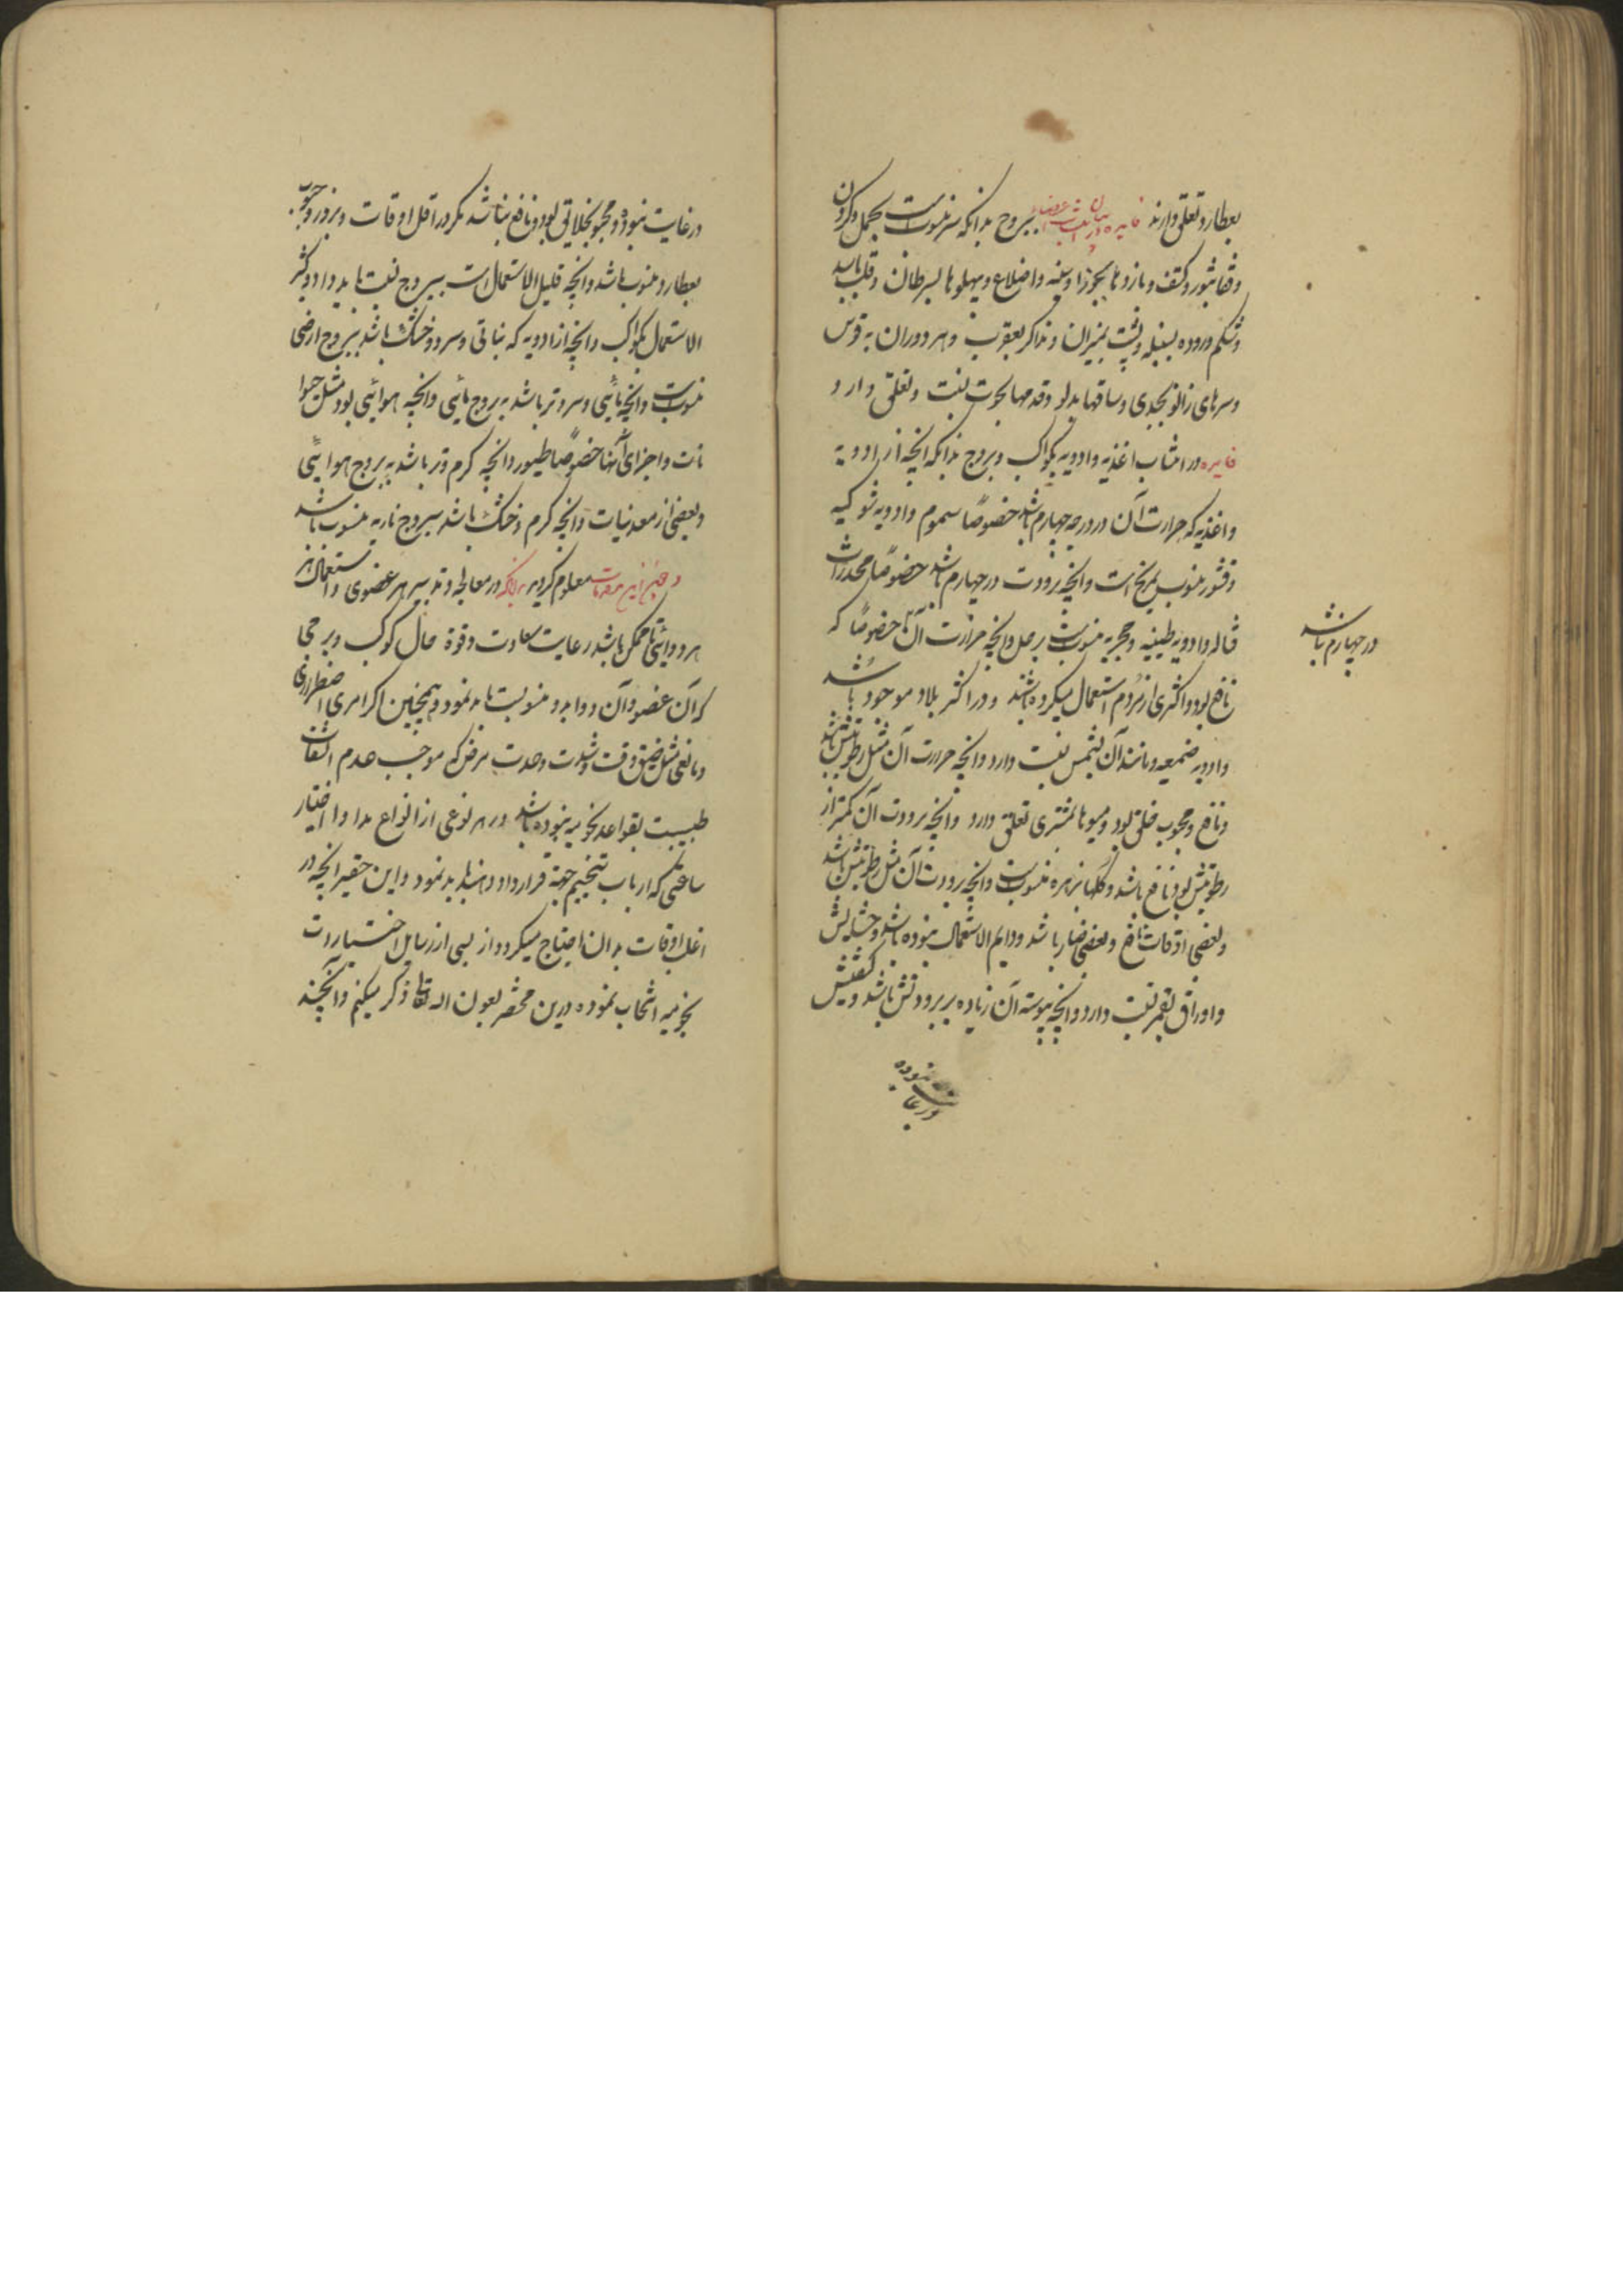 بعطارد تعلق دارند فایده در بیان انتساب اعضا ببروج بدانکه سر منسوبست بحمل و گردن
و قفا بثور و کتف و بازوها بجوزا و سینه و اضلاع و پهلوها بسرطان و قلب باسد
و شکم و روده بسنبله و پشت بمیزان و مذاکر بعقرب و هر دو ران به قوس
و سرهای زانو بجدی و ساقها بدلو و قدمها بحوت نسبت و تعلق دارد
فایده در انتساب اغذیه و ادویه بکواکب و بروج بدانکه آنچه از ادویه
و اغذیه که حرارت آن در درجه چهارم باشد خصوصاً سموم و ادویه شوکیه
و قشور منسوب بمریخ است و آنچه برودت در چهارم باشد خصوصاً مخدرات
قتاله و ادویه طینیه و حجریه منسوبست بزحل و آنچه حرارت آن خصوصاً که
در چهارم باشد
نافع بود و اکثری از مردم استعمال میکرده باشند و در اکثر بلاد موجود باشد
و ادویه صمغیه و مانند آن بشمس نسبت دارد و آنچه حرارت آن مثل رطوبتش باشد
و نافع و محبوب خلق بود و میوها بمشتری تعلق دارد و آنچه برودت آن کمتر از
رطوبتش بود و نافع باشد و گلها بزهره منسوبست و آنچه برودت آن مثل رطوبتش باشد
و بعضی اوقات نافع و بعضی ضار باشد و دایم الاستعمال نبوده باشد و حشایش
و اوراق بقمر نسبت دارد و آنچه یبوسة آن زیاده بر برودتش باشد و کیفیتش
در غایت نبوده
در غایت نبود و محبوب خلایق بود و نافع نباشد مگر در اقل اوقات و بزور و حبوب
بعطارد منسوب باشد و آنچه قلیل الاستعمال است ببروج نسبت باید داد و کثیر
الاستعمال بکواکب و آنچه از ادویه که نباتی و سرد و خشک باشد ببروج ارضی
منسوبست و آنچه مائی و سرد و تر باشد به بروج مائی و آنچه هوائی بود مثل حیوا
نات و اجزای آنها خصوصاً طیور و آنچه گرم و تر باشد به بروج هوایی
و بعضی از معدنیات و آنچه گرم و خشک باشد ببروج ناریه منسوب باشد
و چون این مقدمات معلوم گردید بدانکه در معالجه و تدبیر هر عضوی و استعمال
هر دوائی تا ممکن باشد رعایت سعادت و قوة حال کوکب و برجی
که آن عضو و آن دوا بدو منسوبست باید نمود و همچنین اگر امری اضطراری
و مانعی مثل ضیق وقت و شدت وحدت مرض که موجب عدم التفات
طبیبست بقواعد نجومیه نبوده باشد در هر نوعی از انواع مداوا اختیار
ساعتی که ارباب تنجیم جهة آن قرار داده اند باید نمود و این حقیر آنچه در
اغلب اوقات بدان احتیاج میگردد از بسی از رسایل اختیارات
نجومیه انتخاب نموده درین مختصر بعون الله تعالی ذکر میکنم و آنچند